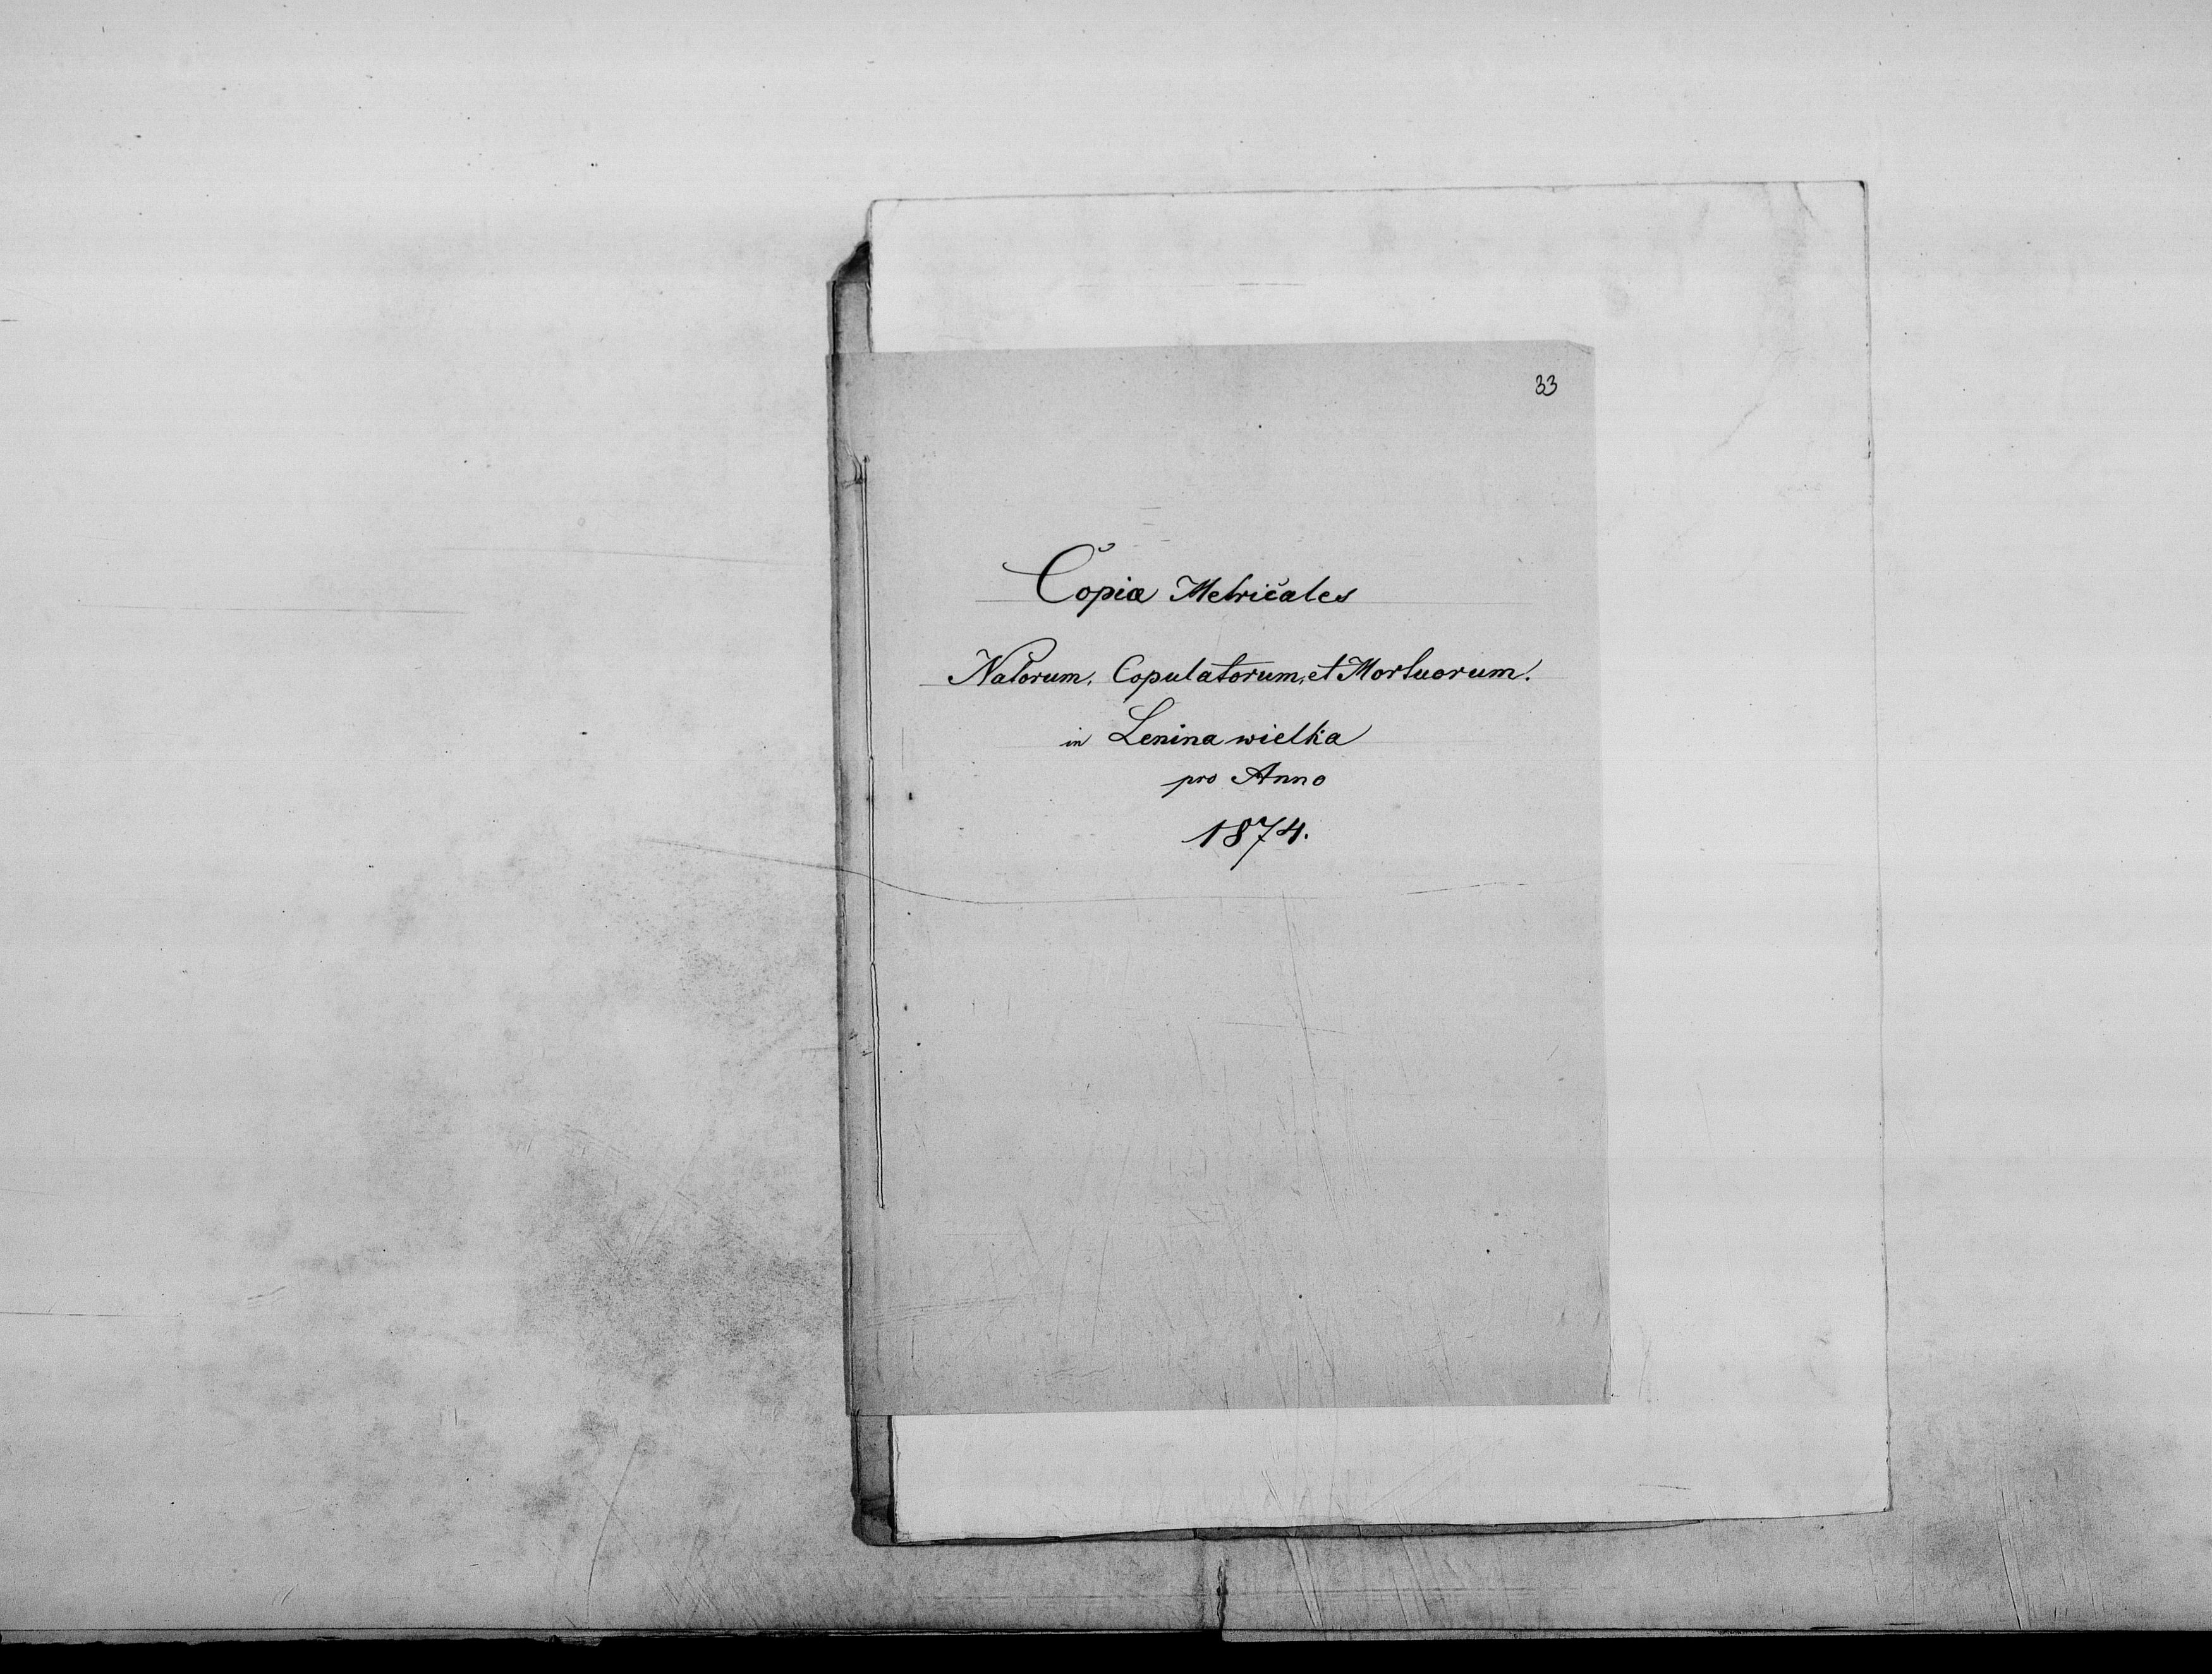 33
Copiæ Metricales
Natorum, Copulatorum, et Mortuorum.
in Lenina wielka
pro Anno
1874.